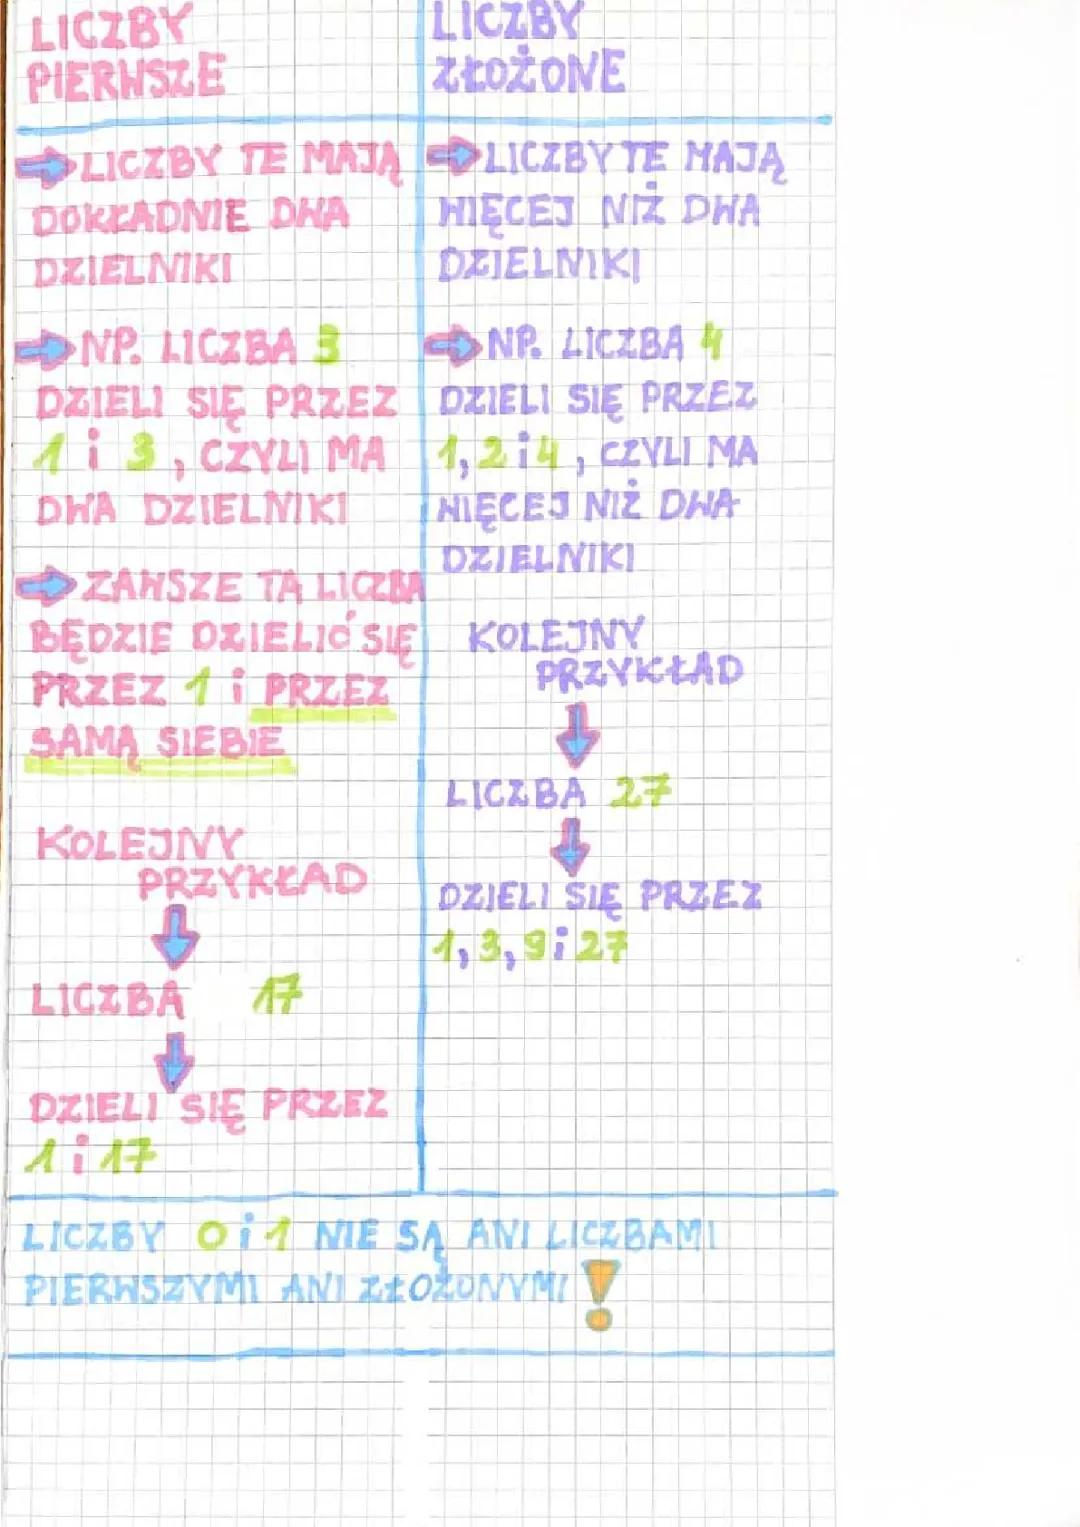 LICZBY
PIERWSZE
→ LICZBY TE MAJĄ
DOKŁADNIE DWA
DZIELNIKI
→ NP. LICZBA 3
DZIELI SIĘ PRZEZ
1 i 3, CZYLI MA
DWA DZIELNIKI
→ ZAWSZE TA LICZBA
BĘDZIE DZIELIĆ SIĘ
PRZEZ 1 i PRZEZ
SAMĄ SIEBIE
KOLEJNY
PRZYKŁAD
LICZBA 17
DZIELI SIĘ PRZEZ
1 i 17
LICZBY
ZŁOŻONE
→ LICZBY TE MAJĄ
WIĘCEJ NIŻ DWA
DZIELNIKI
→ NP. LICZBA 4
DZIELI SIĘ PRZEZ
1, 2 i 4, CZYLI MA
WIĘCEJ NIŻ DWA
DZIELNIKI
KOLEJNY
PRZYKŁAD
LICZBA 27
DZIELI SIĘ PRZEZ
1, 3, 9 i 27
LICZBY 0 i 1 NIE SĄ ANI LICZBAMI
PIERWSZYMI ANI ZŁOŻONYMI !